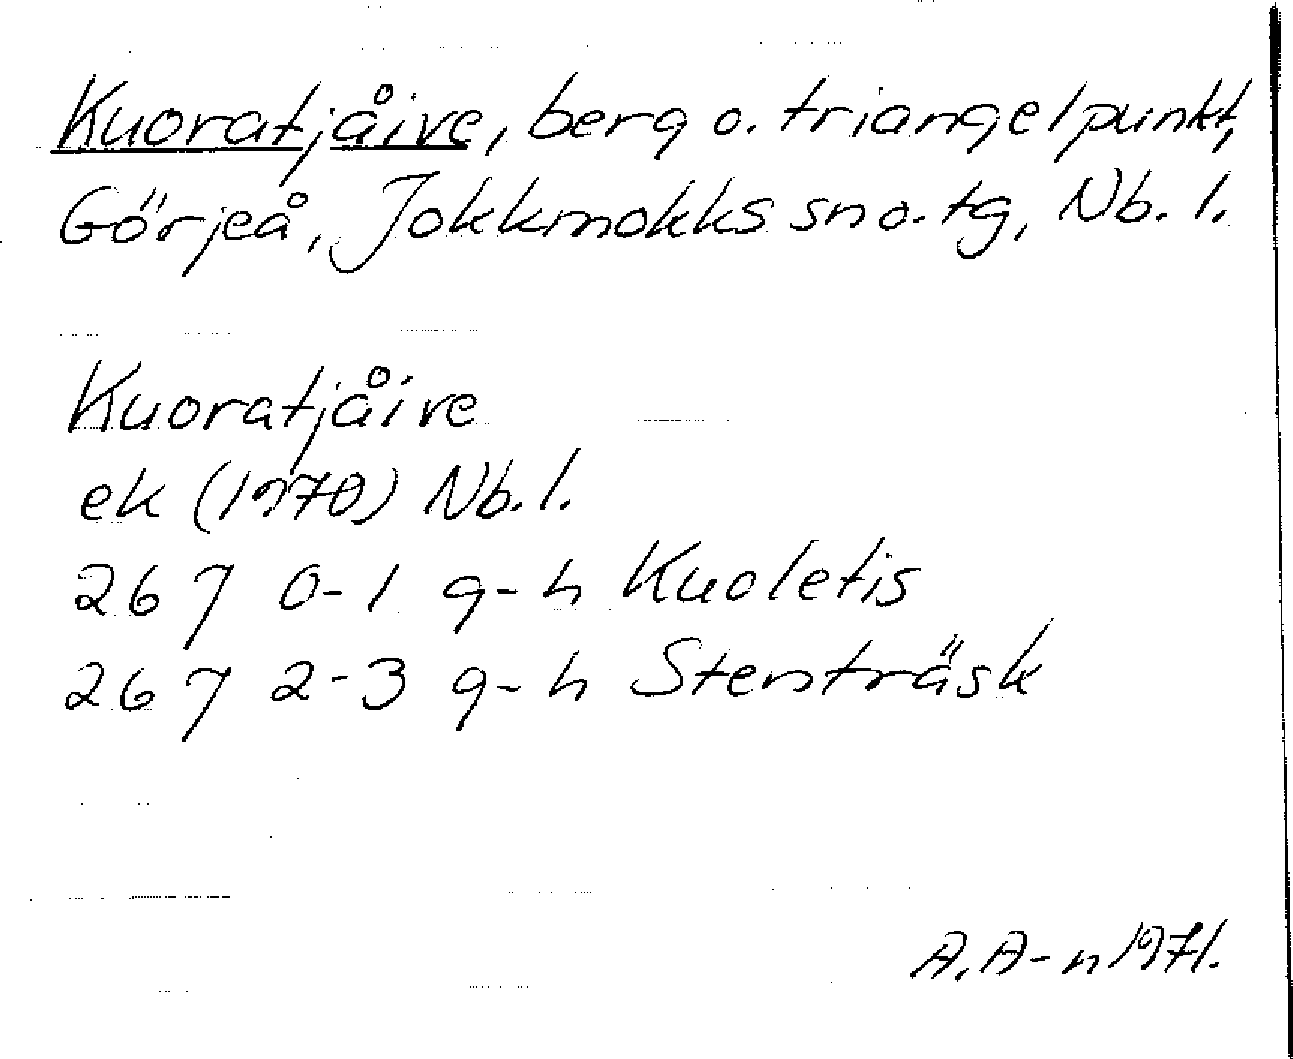 Kuoratjåive, berg o. triangelpunkt,
Görjeå, Jokkmokks sn o. tg, Nb. l.
Kuoratjåive
ek (1970) Nb. l.
267 0-1 g-h Kuoletis
267 2-3 g-h Stensträsk
A. A-n 1971.